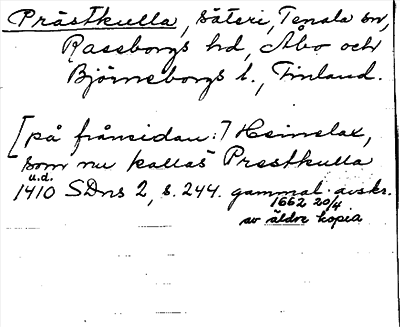 Prästkulla, säteri, Tenala sn,
Raseborgs hd, Åbo och
Björneborgs l., Finland.
[på frånsidan:] Heimslax,
som nu kallas Prestkulla
u.d.
1410 SDns 2, s. 244. gammal avskr.
1662 20/4
av äldre kopia